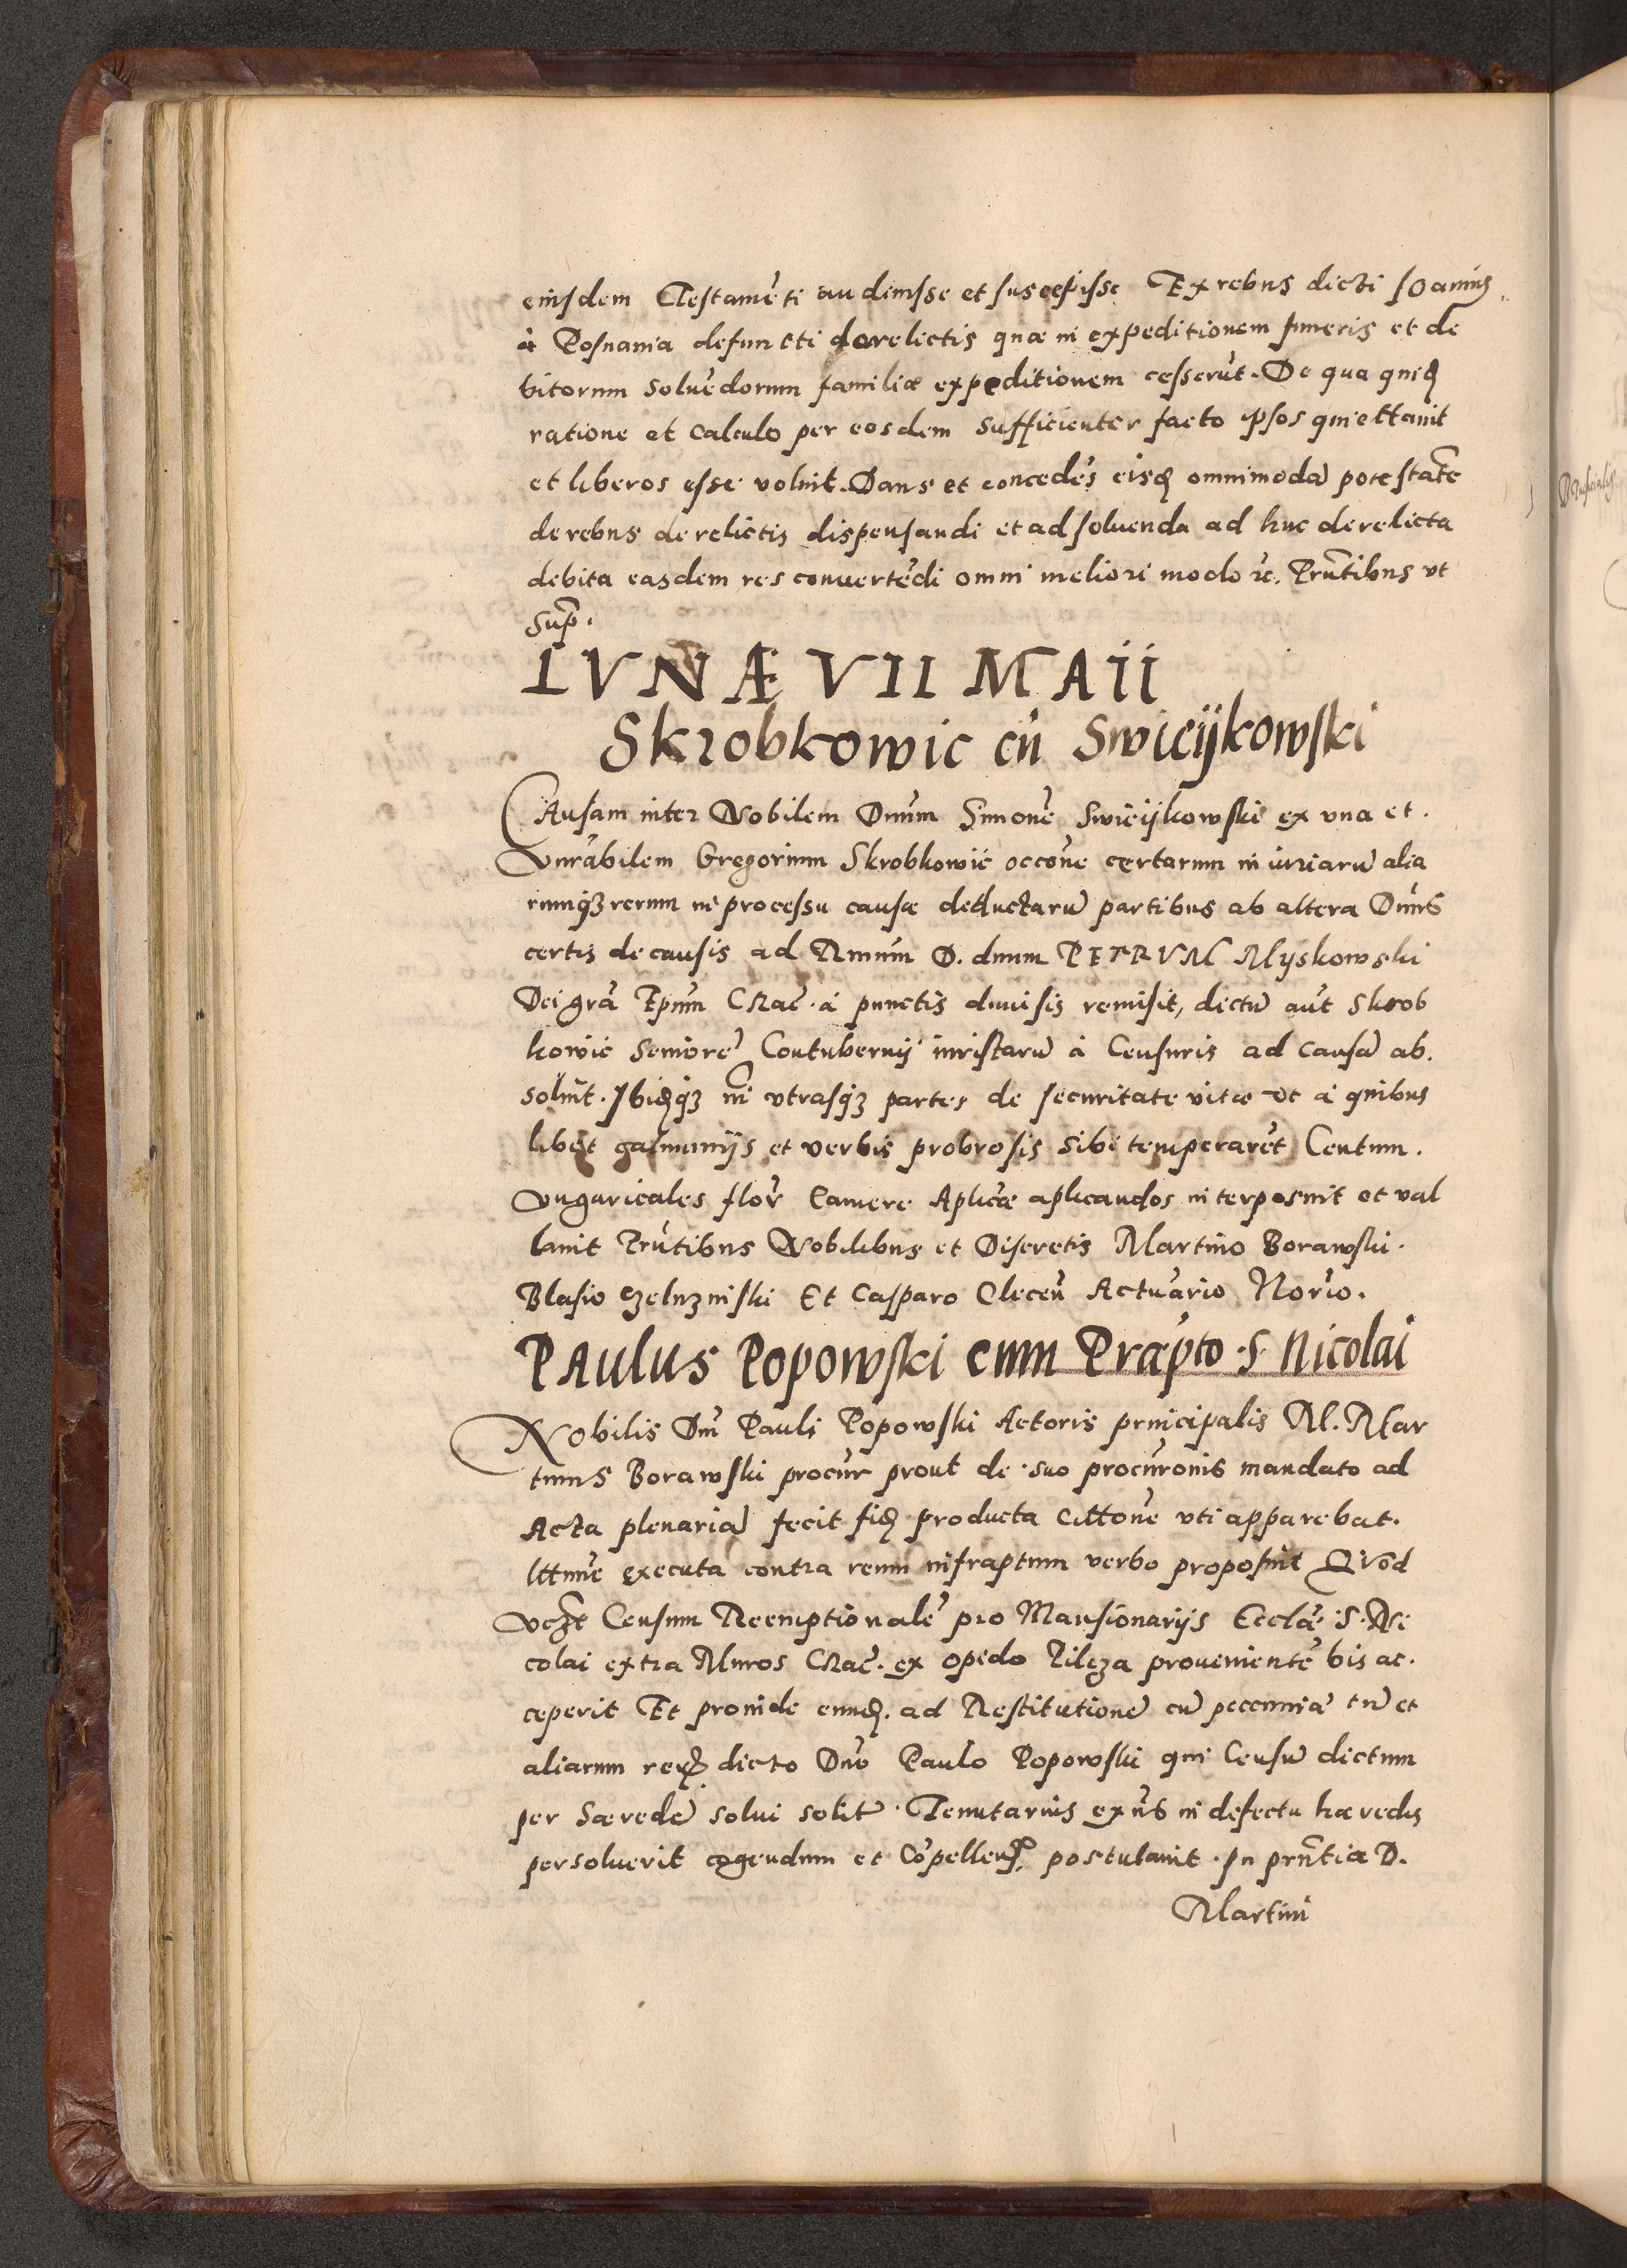 eiusdem Testamēti audiuisse et suscepisse Ex rebus dicti Ioannis
à Posnania defuncti derelictis quæ in expeditionem funeris et de
bitorum soluēdorum familiæ expeditionem cesserūt. De qua quidē
ratione et calculo per eosdem sufficienter facto ipsos quiettauit
et liberos esse voluit. Dans et concedēs eisdē omnimodā potestatē
de rebus derelictis dispensandi et ad soluenda ad huc derelicta
debita easdem res conuertēdi omni meliori modo etc. Prn̄tibus vt
sup̄.
LVNÆ VII MAII
Skrobkowic cū Swiciijkowski
Causam inter Nobilem Dnūm Simonē Swiciijkowski ex vna et
Vnrābilem Gregorium Skrobkowic occōne certarum iniuriarū alia
rumq3 rerum in processu causæ deductarū partibus ab altera Dn̄us
certis de causis ad Rmūm D. dnum PETRVM Myskowski
Dei grā Epūm Crac̄. à punctis diuisis remisit, dictū aūt Skrob
kowic Seniorē Contubernij iuristarū à Censuris ad causā ab.
soluit. Ibidēq3 in vtrasq3 partes de securitate vitæ et à quibus
libet calumnijs et verbis probrosis sibi temperarēt Centum.
Vngaricales flor̄ Camere Aplicæ aplicandos interposuit et val
lauit Prn̄tibus Nobilibus et Discretis Martino Borawski.
Blasio Et Casparo Actuario Norio.
PAulus Popowski cum Præpto S Nicolai
Nobilis Dnī Pauli Popowski Actoris principalis M. Mar
tinus Borawski procur̄ prout de suo procurōnis mandato ad
Acta plenariā fecit fidē producta cittōne vti apparebat.
lttimē executa contra reum infraptum verbo proposuit Quod
vcz̄t Censum Reemptionalē pro Mansionarijs Ecclæ. S. Ni
colai extra Muros Crac̄. ex opido Pilcza prouenientē bis ac.
ceperit Et proinde eundē. ad Restitutionē
aliarum dicto Dnō Paulo Popowski qui Censū dictum
per solui Tenutarius in defectu hæredis
persoluerit cogendum et cōpellend̄ postulauit. In prn̄tia D.
Martini